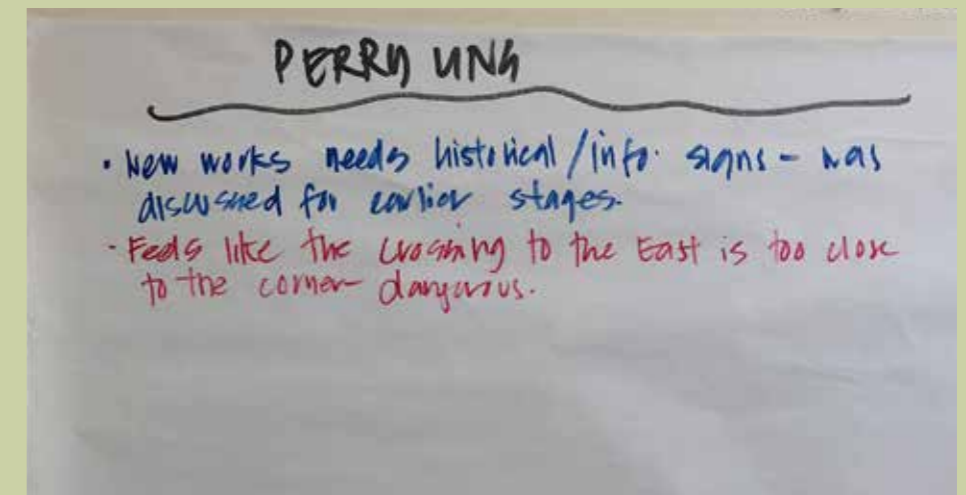 PERRY UNG
• New works needs historical/info. signs - was
discussed for earlier stages.
• Feels like the crossing to the East is too close
to the corner - dangerous.